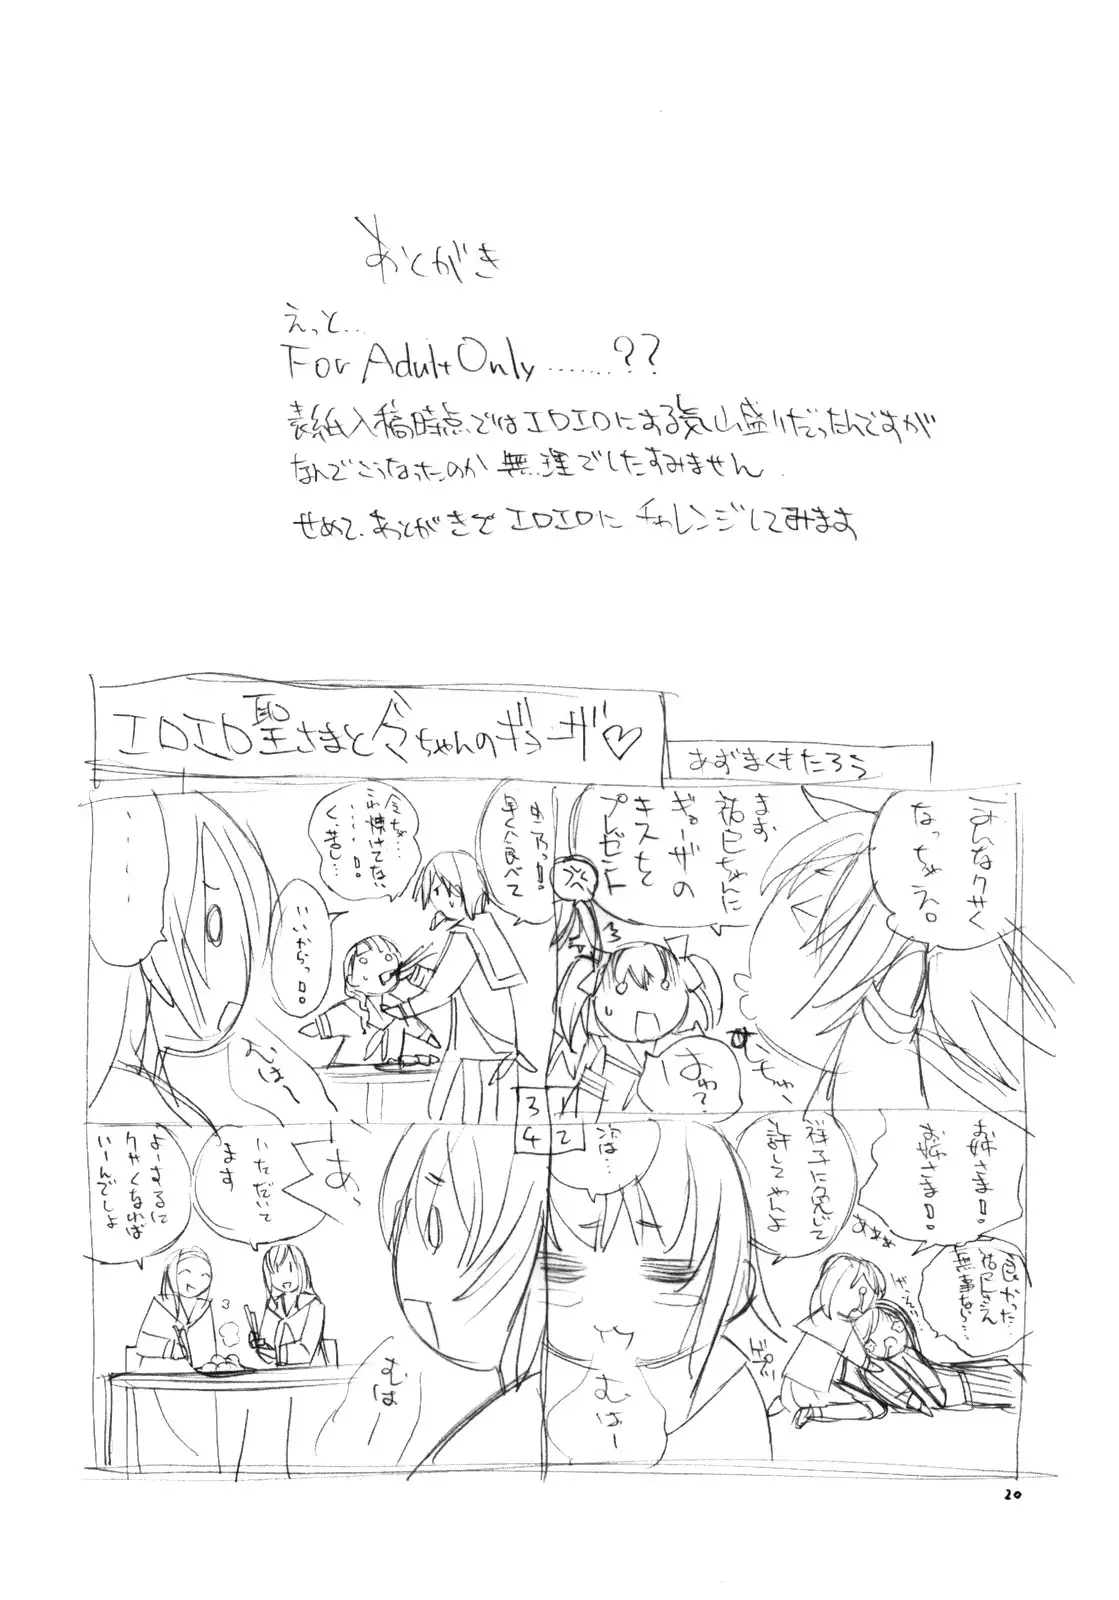 あとがき
えっと…
For Adult Only.......??
表紙入稿時点ではエロエロにする気山盛りだったんですが
なんでこうなったのか無理でしたすみません.
せめて、あとがきでエロエロにチャレンジしてみます
エロエロ聖さまと令ちゃんのギョーザ♡
あずまくもたろう
こんなクサく
なっちゃえ。
まず
祐巳ちゃんに
ギョーザの
キスを
プレゼント
むちゅー
はわ?
1
お姉さま!!
お姉さま!!
良かった
祐巳さえ
無事なら…
ああぁ
祥子に免じて
許してやんよ
次は…
むはー
2
由乃っ!!
早く食べて
令ちゃ…
これ焼けてない
……!!
く、苦し…
いいからっ!!
……
むはー
3
あ、
むは
いただいて
ます
よーするに
クサくなければ
いーんでしょ
4
20